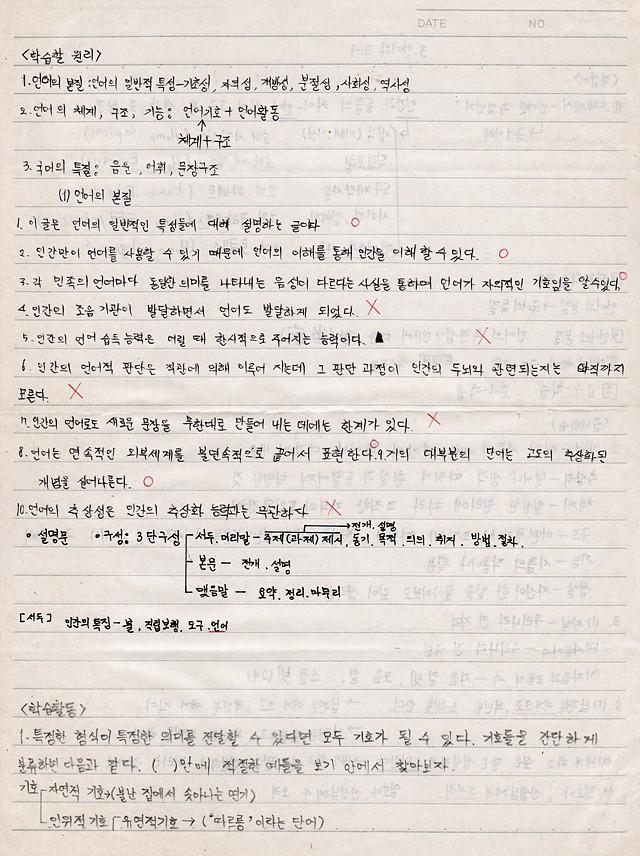 DATE NO
<학습할 원리>
1. 언어의 본질 : 언어의 일반적 특성-기호성, 자의성, 개방성, 분절성, 사회성, 역사성
2. 언어의 체계, 구조, 기능 : 언어기호 + 언어활동
↑
체계+구조
3. 국어의 특질 : 음운, 어휘, 문장구조
(1) 언어의 본질
1. 이 글은 언어의 일반적인 특성들에 대해 설명하는 글이다 ○
2. 인간만이 언어를 사용할 수 있기 때문에 언어의 이해를 통해 인간을 이해 할 수 있다. ○
3. 각 민족의 언어마다 동일한 의미를 나타내는 음성이 다르다는 사실을 통하여 언어가 자의적인 기호임을 알 수 있다. ○
4. 인간의 조음 기관이 발달하면서 언어도 발달하게 되었다. ×
5. 인간의 언어 습득 능력은 어릴 때 한시적으로 주어지는 능력이다. ×
6. 인간의 언어적 판단은 직관에 의해 이루어 지는데 그 판단 과정이 인간의 두뇌와 관련되는지는 아직까지
모른다. ×
7. 인간의 언어로도 새로운 문장을 무한대로 만들어 내는 데에는 한계가 있다. ×
8. 언어는 연속적인 외부세계를 불연속적으로 끊어서 표현한다. ○ 9. 거의 대부분의 단어는 고도의 추상화된
개념을 실어나른다. ○
10. 언어의 추상성은 인간의 추상화 능력과는 무관하다 ×
→전개. 설명
• 설명문 • 구성: 3단구성 서두. 머리말 - 주제(과제) 제시, 동기. 목적. 의의. 취지. 방법. 절차.
본문 - 전개. 설명
맺음말 - 요약. 정리. 마무리
[서두] 인간의 특징 - 불, 직립보행, 도구, 언어
<학습활동>
1. 특정한 형식이 특정한 의미를 전달할 수 있다면 모두 기호가 될 수 있다. 기호들을 간단하게
분류하면 다음과 같다. ( )안에 적절한 예들을 보기 안에서 찾아보자.
기호 자연적 기호 (불난 집에서 솟아나는 연기)
인위적기호 유연적기호 → ("따르릉'이라는 단어)